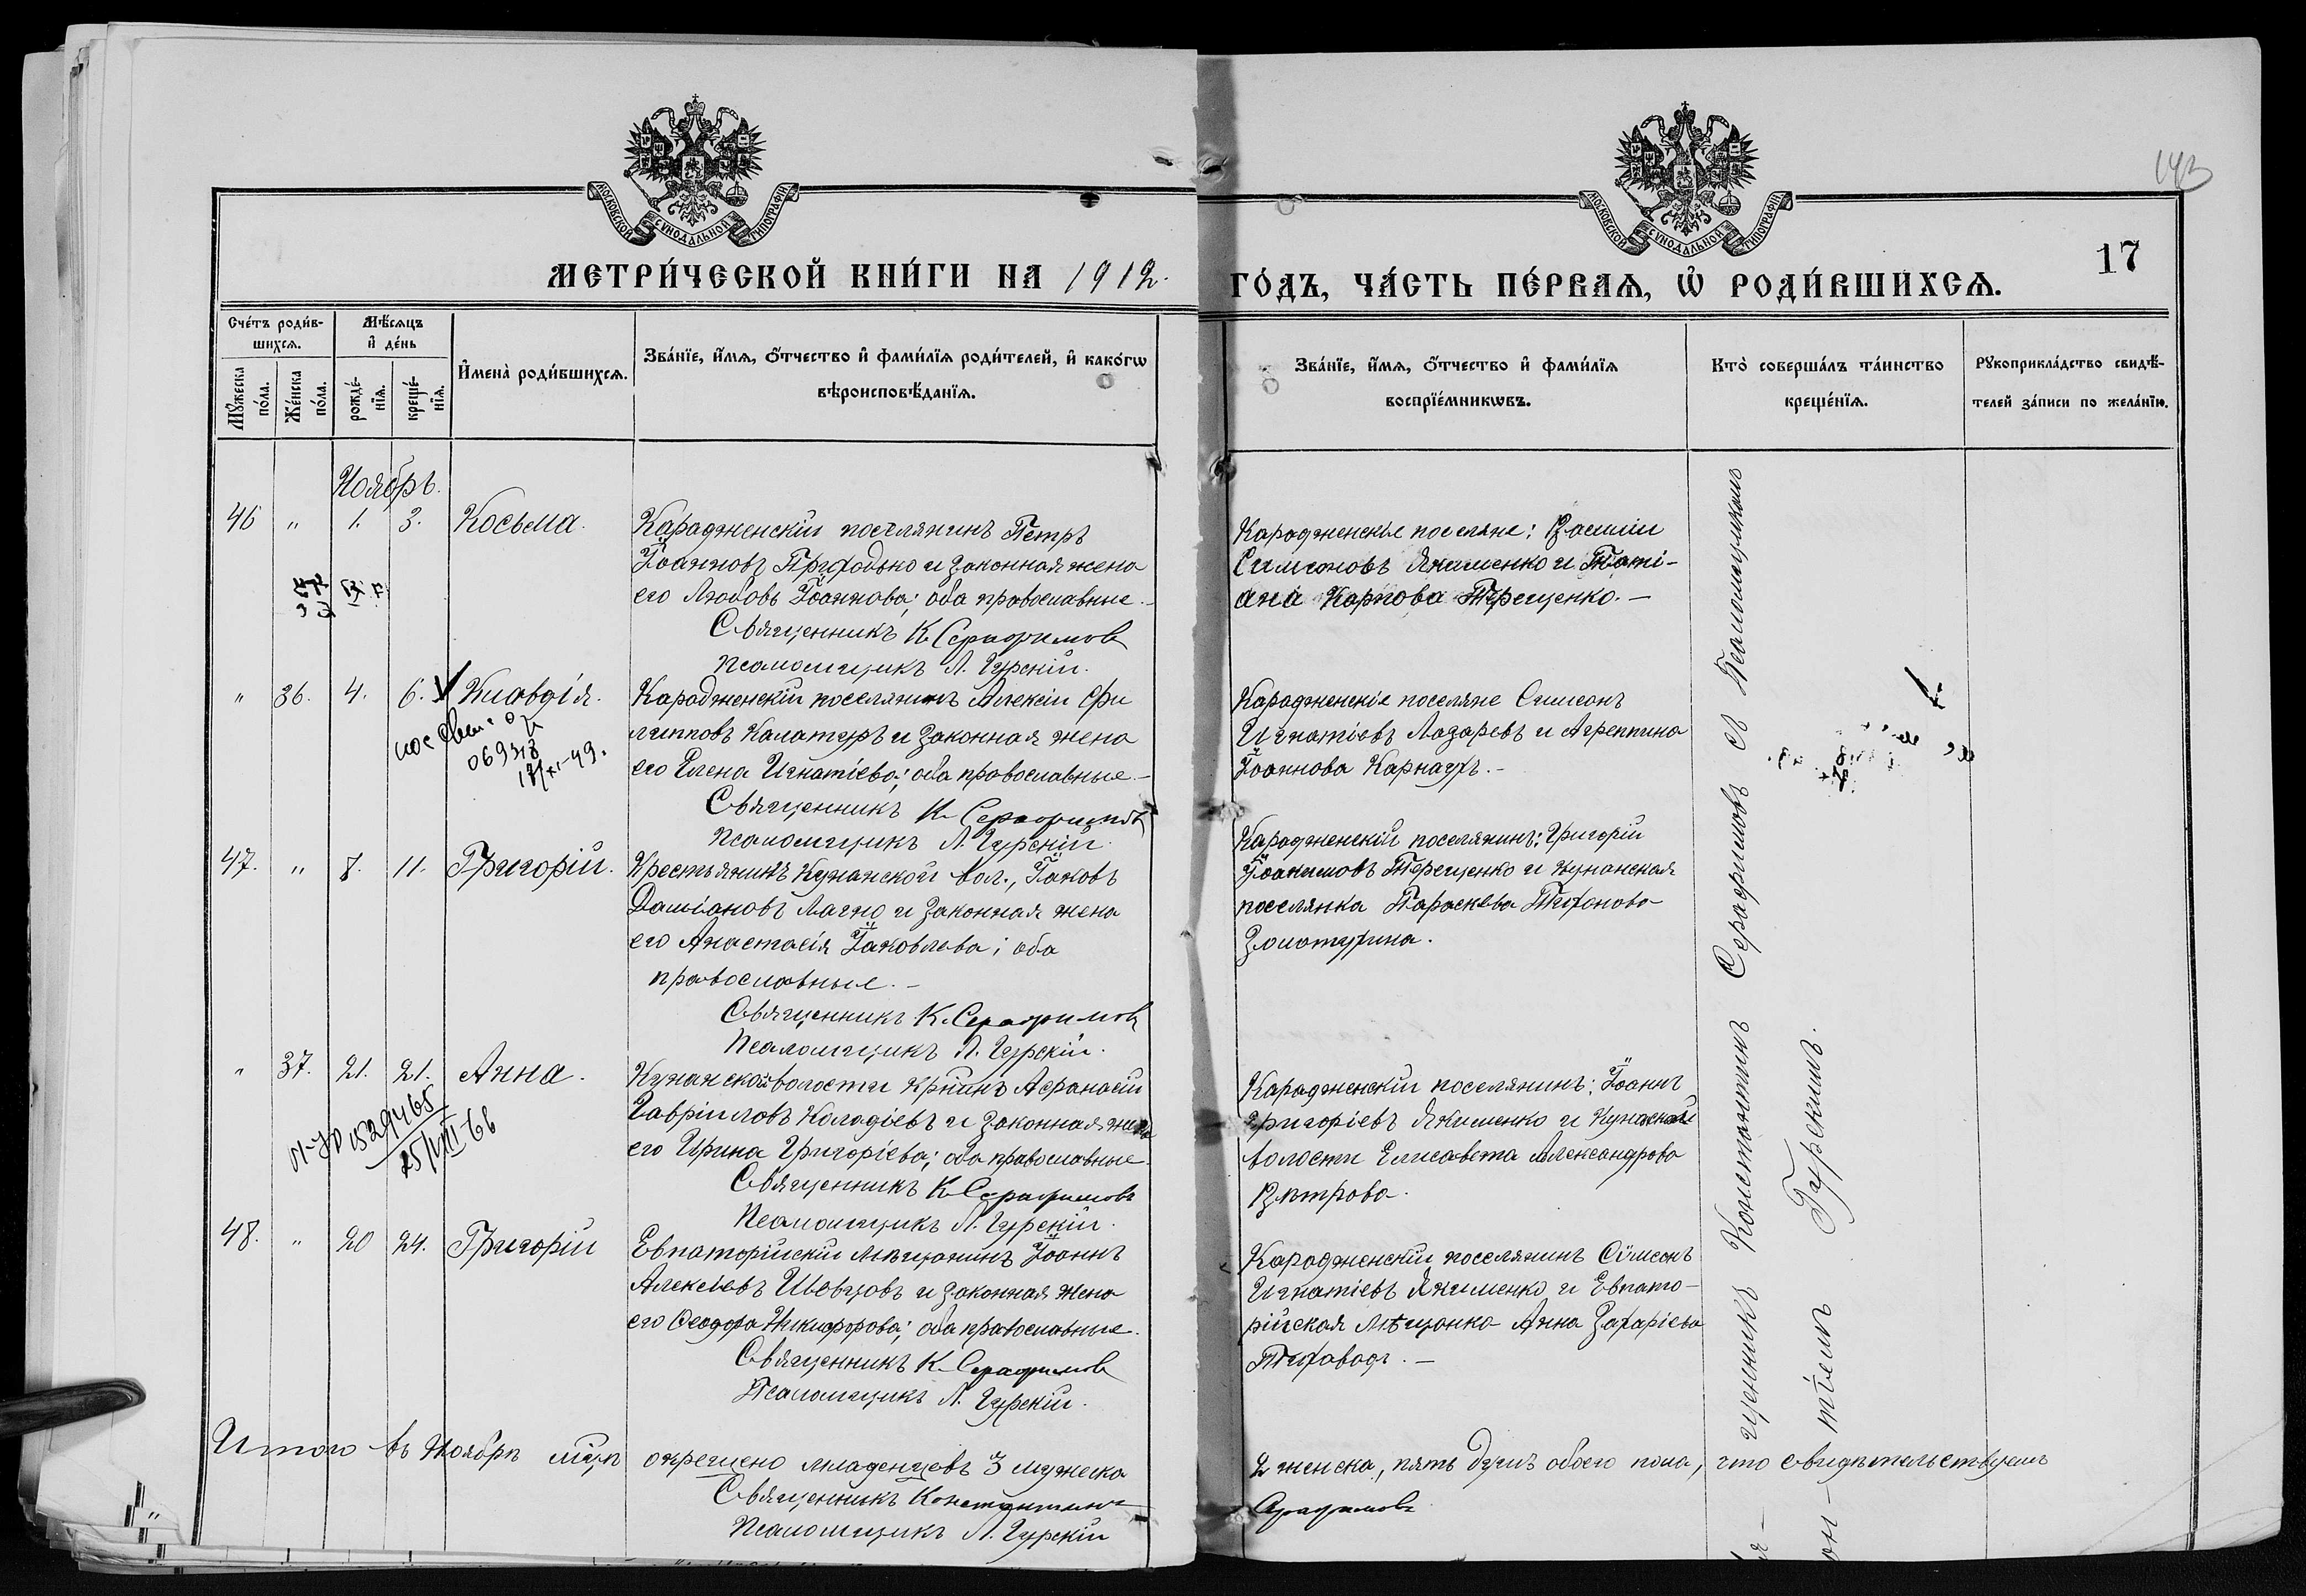 143
МОСКОВСКОЙ СѴНОДАЛЬНОЙ ТИПОГРАФІИ
МОСКОВСКОЙ СѴНОДАЛЬНОЙ ТИПОГРАФІИ
МЕТРИ́ЧЕСКОЙ КНИ́ГИ НА 1912.
ГО́ДЪ, ЧА́СТЬ ПЕ́РВАѦ, Ѡ҆ РОДИ́ВШИХСѦ.
17
Сче́тъ роди́в-
шихсѧ.
Мѣ́сѧцъ
и҆ де́нь
Мꙋ́жеска
по́ла.
Же́нска
по́ла.
рожде́-
нїѧ.
креще́-
нїѧ.
И҆мена̀ роди́вшихсѧ.
Зва́нїе, и҆́мѧ, ѻ҆́тчество и҆ фами́лїѧ роди́телей, и҆ како́гѡ
вѣроисповѣ́данїѧ.
Зва́нїе, и҆́мѧ, ѻ҆́тчество и҆ фами́лїѧ
воспрїе́мникѡвъ.
Кто̀ соверша́лъ та́инство
креще́нїѧ.
Рꙋкоприкла́дство свидѣ́-
телей за́писи по жела́нїю.
Ноябрь.
46 " 1. 3. Косьма.
Карадженскій поселянинъ Петръ
Іоанновъ Приходько и законная жена
его Любовь Іоаннова; оба православные.
Священникъ К. Серафимовъ
Псаломщикъ Л. Гурскій.
Карадженскіе поселяне: Василій
Симеоновъ Якименко и Тати-
ана Карпова Терещенко. –
" 36. 4. 6. Клавдія.
069318
17/XI-49.
Карадженскій поселянинъ Алексій Фи
липповъ Калатуръ и законная жена
его Елена Игнатіева; оба православные. –
Священникъ К. Серафимовъ
Псаломщикъ Л. Гурскій.
Карадженскіе поселяне Симеонъ
Игнатіевъ Лазаревъ и Агреппина
Іоаннова Карнаухъ. –
47. " 8. 11. Григорій.
Крестьянинъ Кунанской вол., Іаковъ
Даміановъ Лагно и законная жена
его Анастасія Іаковлева; оба
православные. –
Священникъ К. Серафимовъ
Псаломщикъ Л. Гурскій.
Карадженскій поселянинъ: Григорій
Іоакимовъ Терещенко и кунанская
поселянка Параскева Тихонова
Золотухина.
" 37. 21. 21. Анна.
1529465
25/VIII-66
Кунанской волости кр-нинъ Афанасій
Гавріиловъ Колодіевъ и законная жена
его Ирина Григоріева; оба православные.
Священникъ К. Серафимовъ
Псаломщикъ Л. Гурскій.
Карадженскій поселянинъ: Іоаннъ
Григоріевъ Якименко и Кунанской
волости Елисавета Александрова
Вѣтрова.
48. " 20 24. Григорій
Евпаторійскій мѣщанинъ Іоаннъ
Алексіевъ Шевцовъ и законная жена
его Ѳеодора Никифорова; оба православные.
Священникъ К. Серафимовъ
Псаломщикъ Л. Гурскій.
Карадженскій поселянинъ Симеонъ
Игнатіевъ Якименко и Евпато-
рійская мѣщанка Анна Захаріева
щенникъ Константинъ Серафимовъ съ Псаломщикомъ
Гурскимъ.
Итого въ Ноябрѣ мѣцѣ окрещено младенцевъ 3 мужеска
2 женска, пять душъ обоего пола, что свидѣтельствуемъ
Священникъ Константинъ
Серафимовъ
Псаломщикъ Л. Гурскій